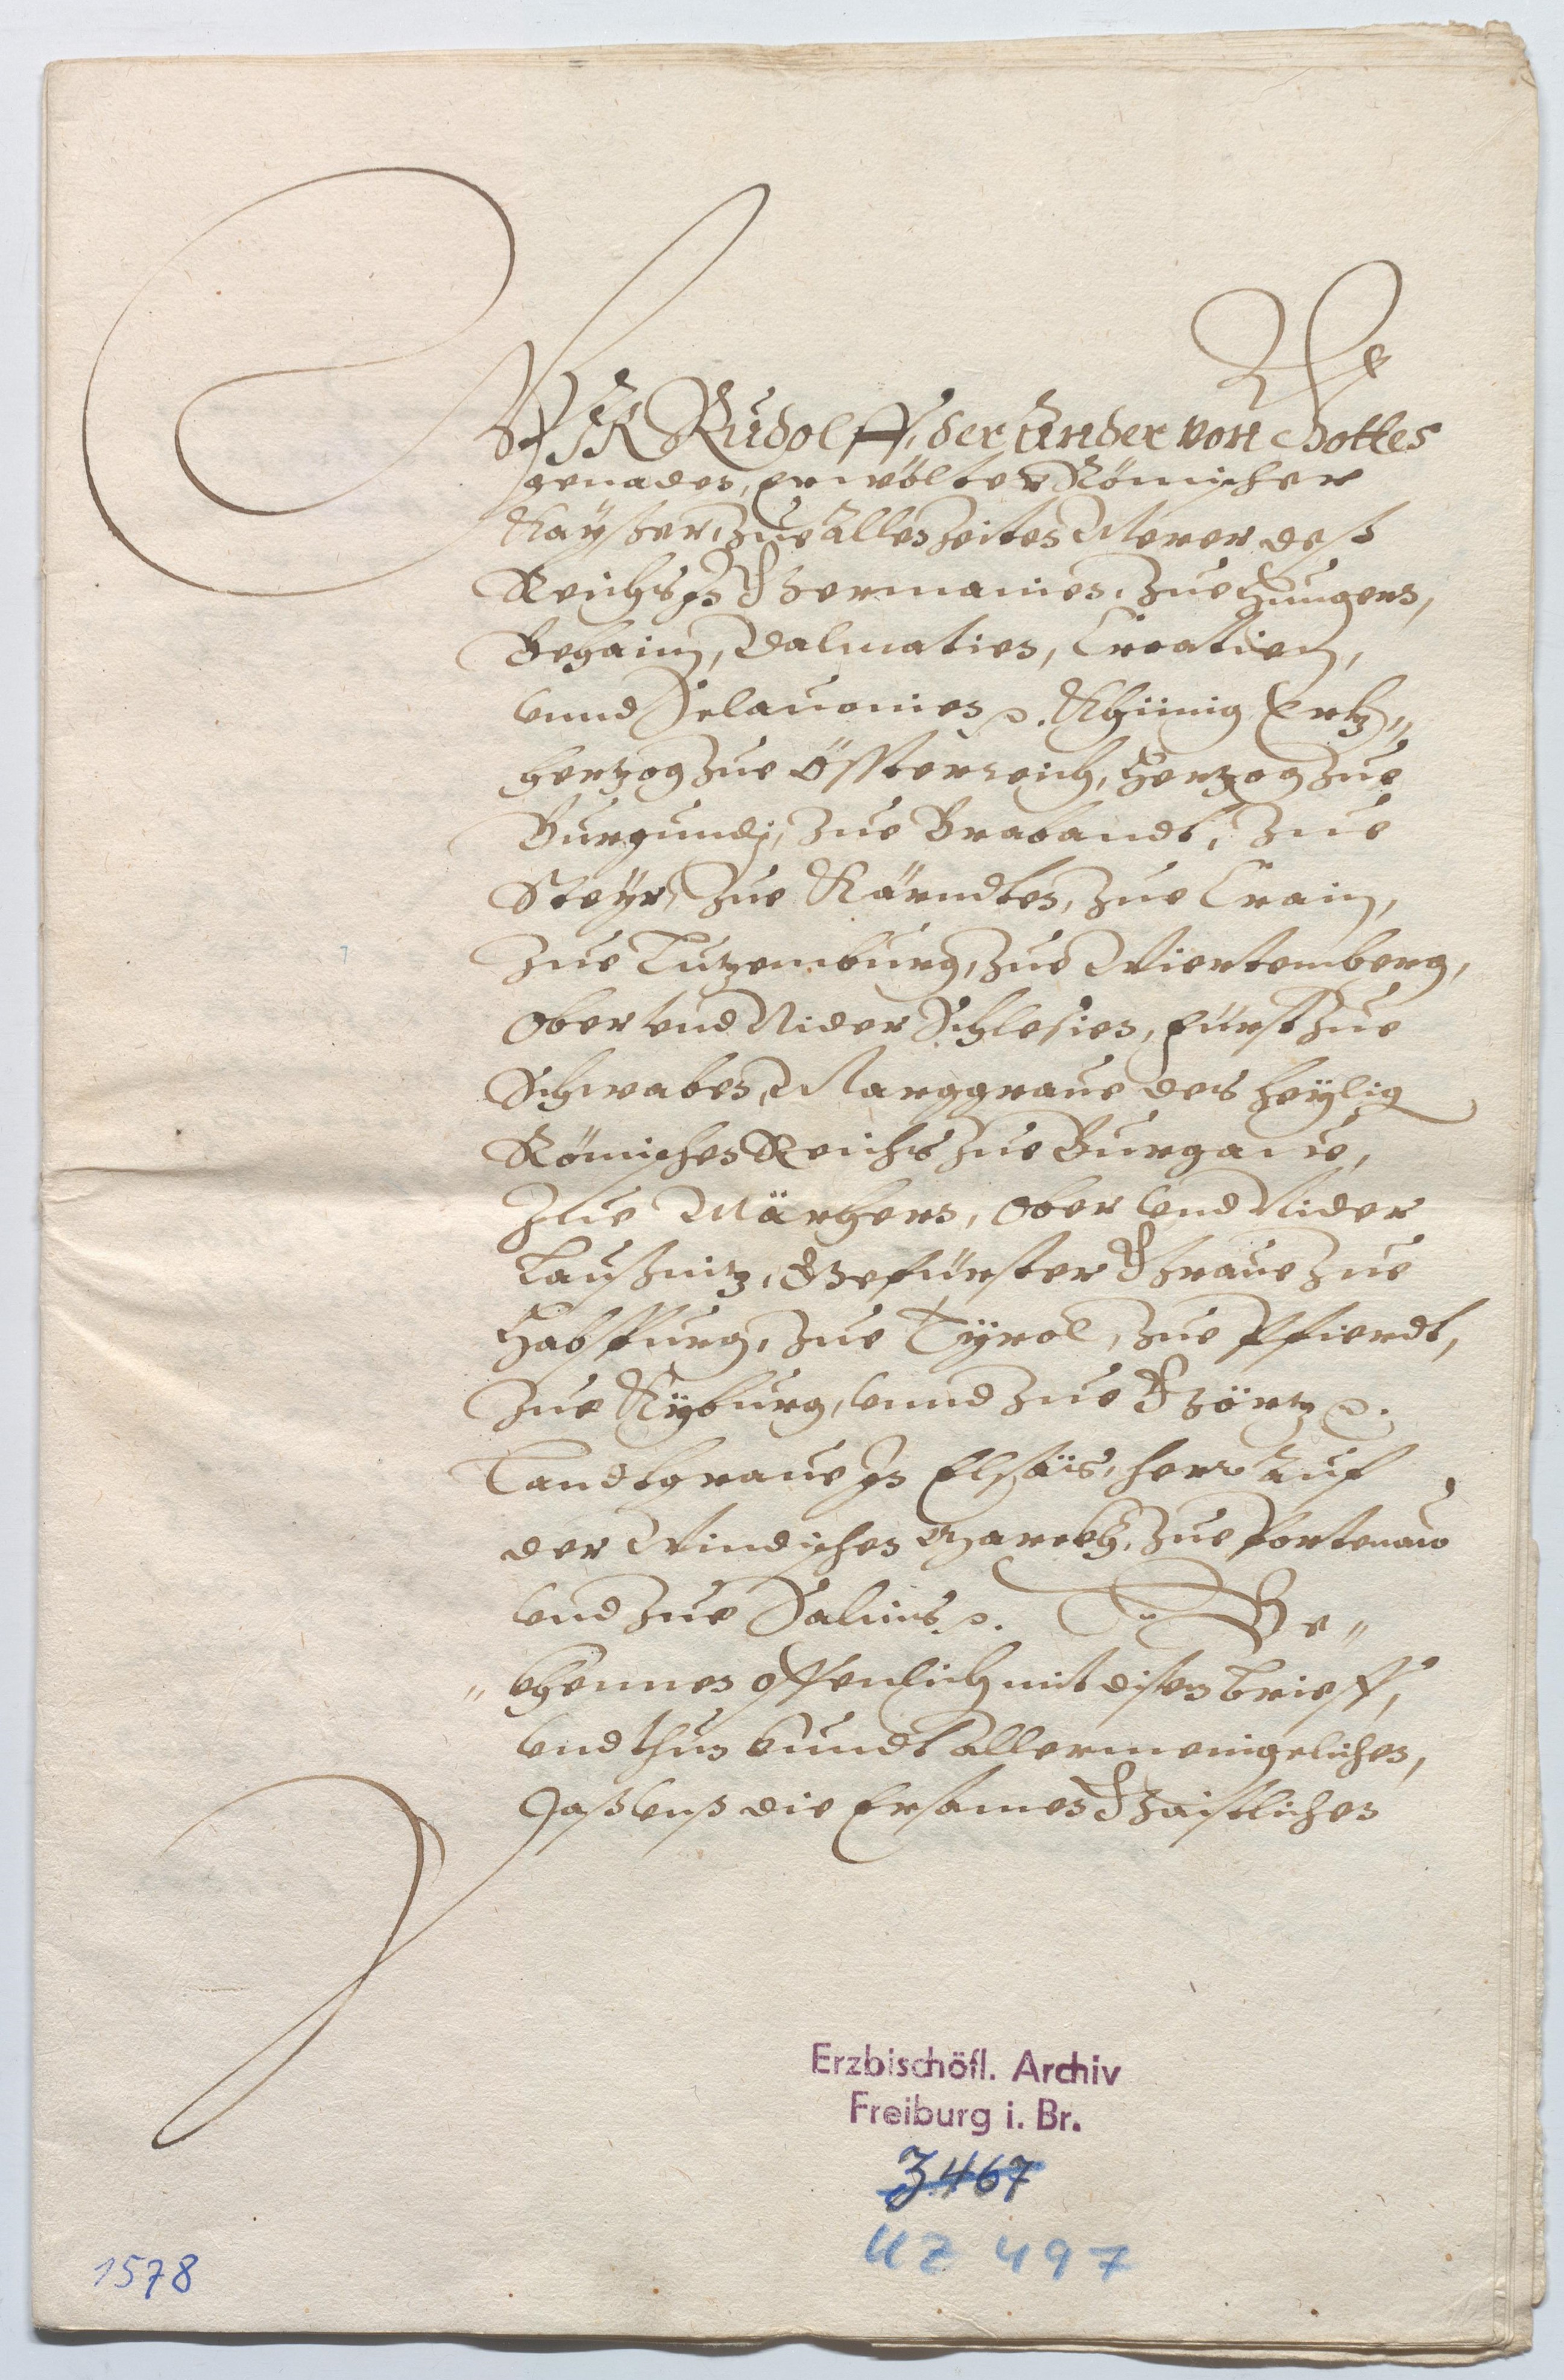 WIR Rudolff, der Ander von Gottes
genaden, erwölter Römischer
Kaÿser, zue allen Zeiten Merer deß
Reichs, In Germanien, zue Hungern,
Behaim, Dalmatien, Croatien,
vnnd Sclauonien [et]c. Khünig Ertz„
hertzog zue Össterreich, Hertzog zue
Burgundj, zue Brabandt, zue
Steÿr, zue Kärndten, zue Crain,
zue Lutzemburg, zue Wiertemberg,
Ober vnd Nider Schlesien, Fürst zue
Schwaben, Marggraue des heÿlig
Römischen Reichs zue Burgaue,
zue Märhern, Ober vnd Nider
Laußnitz, Gefürster Graue zue
Habspurg, zue Tÿrol, zue Pfierdt,
zue Kÿburg, vnnd zue Görtz [et]c.
Landtgraue In Elsäss, herr auf
der Windischen Marckh, zue Portenaw
vnd zue Salins [et]c. Be„
„khennen offenlich mit disem brieff,
vnd thun kundt allermenigelichen,
Daß vnß die Ersamen Gaistlichen
Erzbischöfl. Archiv
Freiburg i. Br.
3467
UZ 497
1578